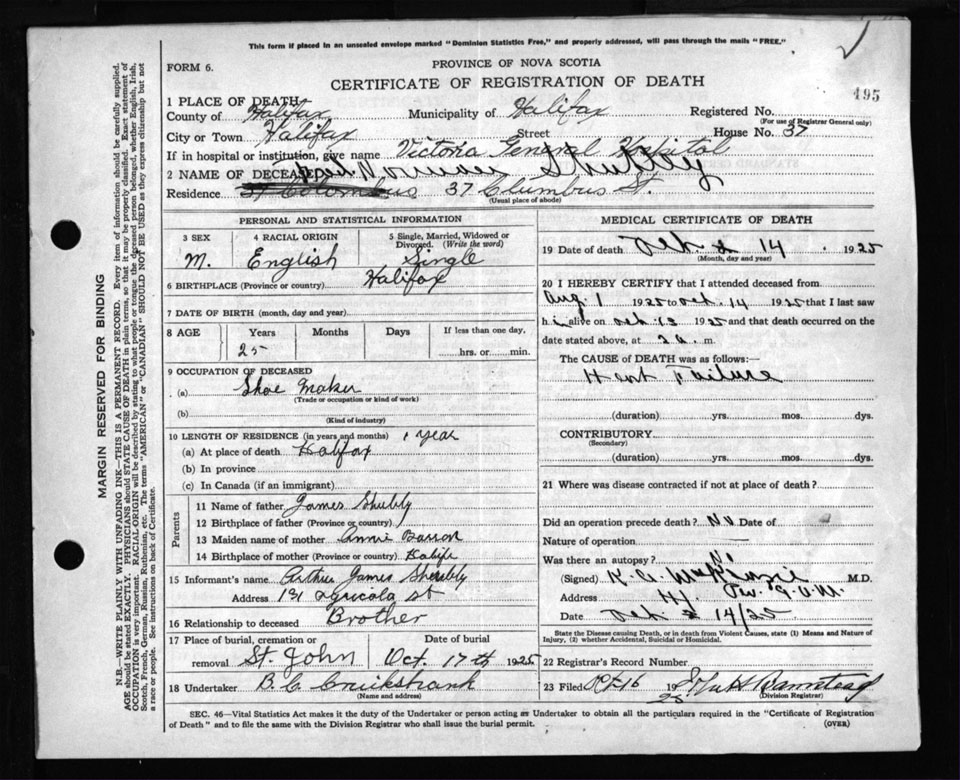 This form if placed in an unsealed envelope marked "Dominion Statistics Free," and properly addressed, will pass through the mails "FREE."
FORM 6.
PROVINCE OF NOVA SCOTIA
CERTIFICATE OF REGISTRATION OF DEATH
495
1 PLACE OF DEATH
County of Halifax Municipality of Halifax Registered No.
(For use of Registrar General only)
City or Town Halifax Street House No. 37
If in hospital or institution, give name Victoria General Hospital
2 NAME OF DECEASED Norman
Residence 37 Clumbus St.
(Usual place of abode)
PERSONAL AND STATISTICAL INFORMATION
3 SEX M.
4 RACIAL ORIGIN English
5 Single, Married, Widowed or Divorced. (Write the word) Single
6 BIRTHPLACE (Province or country) Halifax
7 DATE OF BIRTH (month, day and year)
8 AGE Years Months Days If less than one day,
25 hrs. or min.
9 OCCUPATION OF DECEASED
(a) Shoe Maker
(Trade or occupation or kind of work)
(b)
(Kind of industry)
10 LENGTH OF RESIDENCE (in years and months) 1 year
(a) At place of death Halifax
(b) In province
(c) In Canada (if an immigrant)
Parents
11 Name of father James Shubly
12 Birthplace of father (Province or country)
13 Maiden name of mother Annie Barron
14 Birthplace of mother (Province or country) Halifx
15 Informant's name Arthur James
Address 131 Agricola St
16 Relationship to deceased Brother
17 Place of burial, cremation or removal St. John
Date of burial Oct. 17th 1925
18 Undertaker B. C. Cruikshank
(Name and address)
MEDICAL CERTIFICATE OF DEATH
19 Date of death 14 1925
(Month, day and year)
20 I HEREBY CERTIFY that I attended deceased from
Aug. 1 1925 to Oct. 14 1925 that I last saw
him alive on Oct. 13 1925 and that death occurred on the
date stated above, at 2 a. m.
The CAUSE of DEATH was as follows:
Heart Failure
(duration) yrs. mos. dys.
CONTRIBUTORY
(Secondary)
(duration) yrs. mos. dys.
21 Where was disease contracted if not at place of death?
Did an operation precede death? No Date of
Nature of operation —
Was there an autopsy? No
(Signed) K. A. McKenzie M.D.
Address
Date 14/25
State the Disease causing Death, or in death from Violent Causes, state (1) Means and Nature of
Injury, (2) whether Accidental, Suicidal or Homicidal.
22 Registrar's Record Number
23 Filed Oct 16 1925
(Division Registrar)
SEC. 46—Vital Statistics Act makes it the duty of the Undertaker or person acting as Undertaker to obtain all the particulars required in the "Certificate of Registration
of Death" and to file the same with the Division Registrar who shall issue the burial permit.
(OVER)
MARGIN RESERVED FOR BINDING
N.B.—WRITE PLAINLY WITH UNFADING INK—THIS IS A PERMANENT RECORD. Every item of information should be carefully supplied.
AGE should be stated EXACTLY. PHYSICIANS should STATE CAUSE OF DEATH in plain terms, so that it may be properly classified. Exact statement of
OCCUPATION is very important. RACIAL ORIGIN will be described by stating to what people or tongue the deceased person belonged, whether English, Irish,
Scotch, French, German, Russian, Ruthenian, etc. The terms "AMERICAN" or "CANADIAN" SHOULD NOT BE USED as they express citizenship but not
a race or people. See instructions on back of Certificate.